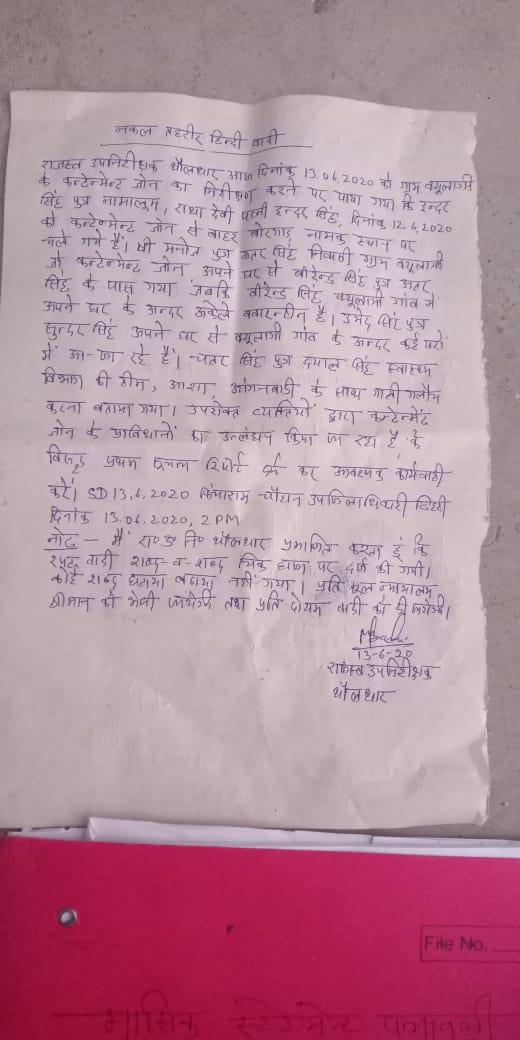 नकल तहरीर हिन्दी वादी
राजस्व उपनिरीक्षक थौलधार आज दिनांक 13.06.2020 को ग्राम
के कन्टेन्मेन्ट जोन का निरीक्षण करने पर पाया गया कि इन्दर
सिंह पुत्र नामालूम, राधा देवी पत्नी इन्दर सिंह, दिनांक 12.6.2020
को कन्टेन्मेन्ट जोन से बाहर नामक स्थान पर
चले गये हैं। श्री मनोज पुत्र सिंह निवासी ग्राम
जो कन्टेन्मेन्ट जोन अपने घर से बीरेन्द्र सिंह पुत्र
सिंह के पास गया जबकि बीरेन्द्र सिंह, गांव में
अपने घर के अन्दर अकेले क्वारन्टीन है। उमेद सिंह पुत्र
सुन्दर सिंह अपने घर से गांव के अन्दर कई घरों
में आ-जा रहे हैं। सिंह पुत्र दयाल सिंह स्वास्थ्य
विभाग की टीम, आशा, आंगनबाडी के साथ गाली गलौच
करना बताया गया। उपरोक्त व्यक्तियों द्वारा कन्टेन्मेंट
जोन के प्राविधानों का उल्लंघन किया जा रहा है के
विरूद्ध प्रथम सूचना रिपोर्ट दर्ज कर आवश्यक कार्यवाही
करें। SD 13.6.2020 चौहान उपजिलाधिकारी टिहरी
दिनांक 13.06.2020, 2 PM
नोट - मैं रा० उ० नि० थौलधार प्रमाणित करता हूं कि
वादी शब्द-ब-शब्द चिक पर दर्ज की गयी।
कोई शब्द घटाया बढाया नहीं गया। प्रति मूल न्यायालय
श्रीमान को भेजी जायेगी तथा प्रति दोयम वादी को दी जायेगी।
13-6-20
राजस्व उपनिरीक्षक
थौलधार
File No.
मासिक स्टेटमेन्ट पत्रावली